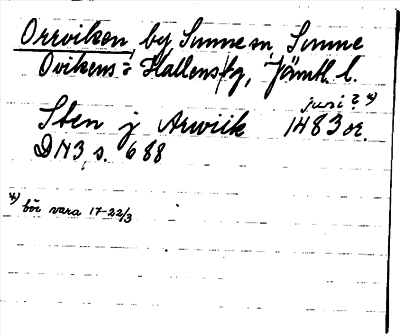 Orrviken, by, Sunne sn, Sunne
Ovikens o Hallens tg, Jämtl. l.
juni? *)
Sten j Arwiik 1483 or.
DN3, s. 688
*) bör vara 17-22/3